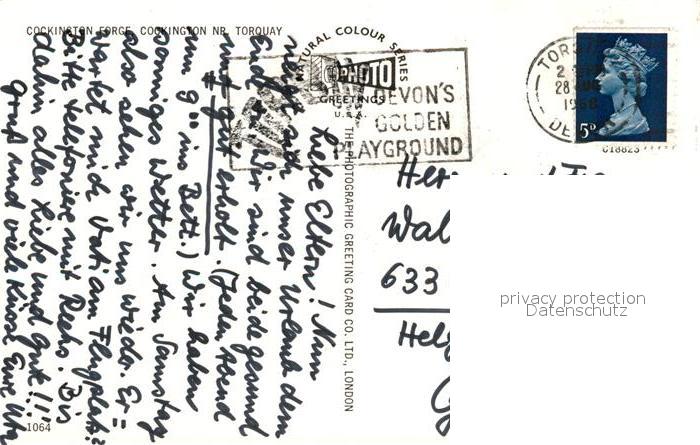 COCKINGTON FORGE, COCKINGTON NR. TORQUAY
NATURAL COLOUR SERIES
PHOTO
GREETINGS
U.S.A.
DEVON'S
GOLDEN
PLAYGROUND
28 AUG
1968
5D
C18823
THE PHOTOGRAPHIC GREETING CARD CO. LTD., LONDON
Liebe Eltern! Nun
neigt sich unser Urlaub dem
Ende zu. Wir sind beide gesund
und gut erholt. (Jeden Abend
um 9°° ins Bett.) Wir haben
sonniges Wetter. Am Samstag
also sehen wir uns wieder. Er=
wartet mich Vati am Flugplatz?
Bitte telefoniere mit Riehs. Bis
dahin alles Liebe und Gute!!!
Gruß und viele Küsse Eure Uta
Wal
633
Helg
privacy protection
Datenschutz
1064